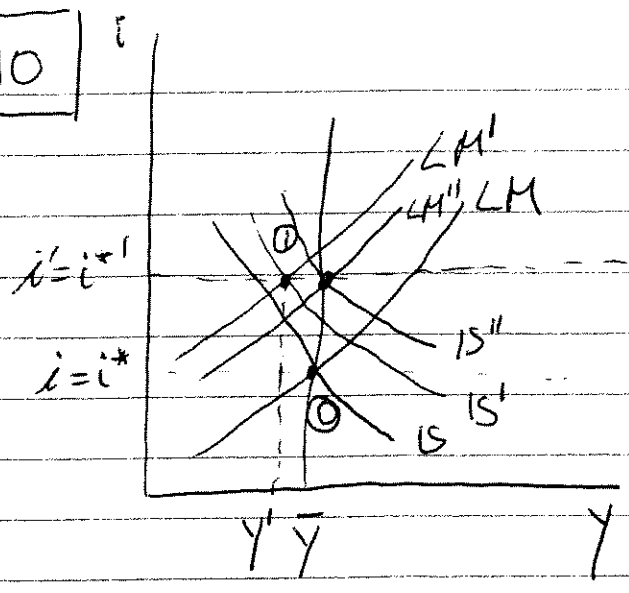 10
i
LM'
LM'' LM
①
i'=i*'
IS''
i=i*
IS'
⓪
IS
Y' Ȳ Y